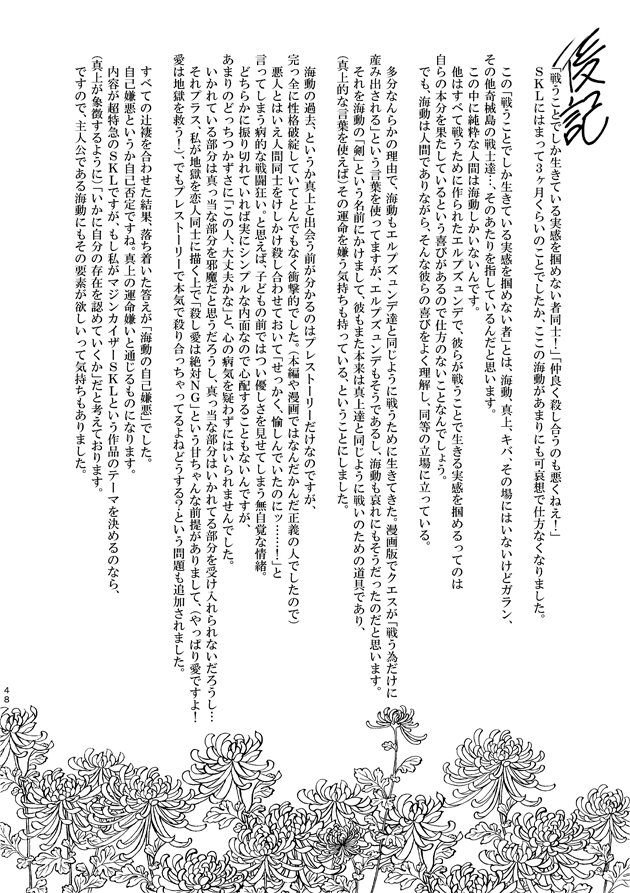 後記
「戦うことでしか生きている実感を掴めない者同士！」「仲良く殺し合うのも悪くねえ！」
SKLにはまって3ヶ月くらいのことでしたか、ここの海動があまりにも可哀想で仕方なくなりました。
この「戦うことでしか生きている実感を掴めない者」とは、海動、真上、キバ、その場にはいないけどガラン、
その他奇械島の戦士達…、そのあたりを指しているんだと思います。
この中に純粋な人間は海動しかいないんです。
他はすべて戦うために作られたエルプズュンデで、彼らが戦うことで生きる実感を掴めるってのは
自らの本分を果たしているという喜びがあるので仕方のないことなんでしょう。
でも、海動は人間でありながら、そんな彼らの喜びをよく理解し、同等の立場に立っている。
多分なんらかの理由で、海動もエルプズュンデ達と同じように戦うために生きてきた。漫画版でクエスが「戦う為だけに
産み出される」という言葉を使ってますが、エルプズュンデもそうであるし、海動も哀れにもそうだったのだと思います。
それを海動の「剣」という名前にかけまして、彼もまた本来は真上達と同じように戦いのための道具であり、
(真上的な言葉を使えば)その運命を嫌う気持ちも持っている、ということにしました。
海動の過去、というか真上と出会う前が分かるのはプレストーリーだけなのですが、
完っ全に性格破綻していてとんでもなく衝撃的でした。(本編や漫画ではなんだかんだ正義の人でしたので)
悪人とはいえ人間同士をけしかけ殺し合わせておいて「せっかく、愉しんでいたのにッ……！」と
言ってしまう病的な戦闘狂い。と思えば、子どもの前ではつい優しさを見せてしまう無自覚な情緒。
どちらかに振り切れていれば実にシンプルな内面なので心配することもないんですが、
あまりのどっちつかずさに「この人、大丈夫かな」と、心の病気を疑わずにはいられませんでした。
いかれている部分は真っ当な部分を邪魔だと思うだろうし、真っ当な部分はいかれてる部分を受け入れられないだろうし…
それプラス、私が地獄を恋人同士に描く上で「殺し愛は絶対NG」という甘ちゃんな前提がありまして、(やっぱり愛ですよ！
愛は地獄を救う！)、でもプレストーリーで本気で殺り合っちゃってるよねどうする？という問題も追加されました。
すべての辻褄を合わせた結果、落ち着いた答えが「海動の自己嫌悪」でした。
自己嫌悪というか自己否定ですね。真上の運命嫌いと通じるものになります。
内容が超特急のSKLですが、もし私がマジンカイザーSKLという作品のテーマを決めるのなら、
(真上が象徴するように)「いかに自分の存在を認めていくか」だと考えております。
ですので、主人公である海動にもその要素が欲しいって気持ちもありました。
48